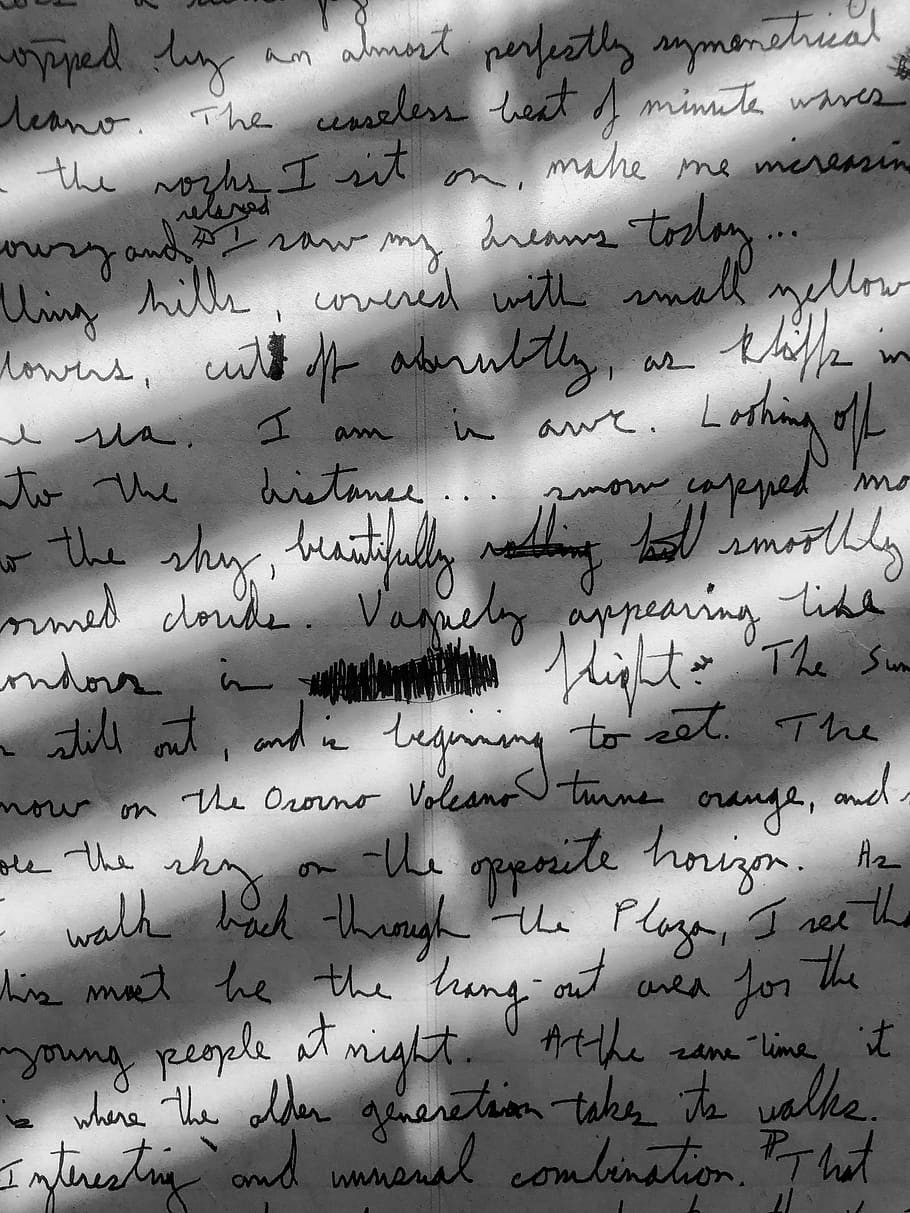 opped by an almost perfectly symmetrical
lcano. The ceaseless beat of minute waves
the rocks I sit on, make me increasin
relaxed
owsy and I saw my dreams today...
lling hills, covered with small yellow
lowers, cut off abrubtly, as kliffs in
he sea. I am in awe. Looking off
nto the distance... snow capped mo
to the sky, beautifully rolling but smoothly
ormed clouds. Vaguely appearing like
ondors in flight. The Sun
still out, and is beginning to set. The
now on the Osorno Volcano turns orange, and
the sky on the opposite horizon. As
I walk back through the Plaza, I see tha
his must be the hang-out area for the
young people at night. At the same-time it
is where the older generation takes its walks.
Interesting and unusual combination. That